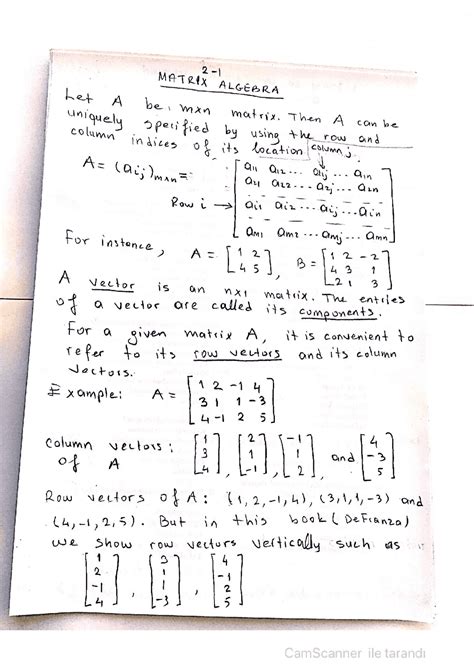 2-1
MATRIX ALGEBRA
Let A be mxn matrix. Then A can be
uniquely specified by using the row and
column indices of its location column j
A = (aij)mxn =
a11 a12 ... a1j ... a1n
a21 a22 ... a2j ... a2n
Row i → ai1 ai2 ... aij ... ain
am1 am2 ... amj ... amn
For instance, A = [1 2
4 5], B = [1 2 -2
4 3 1
2 1 3]
A vector is an nx1 matrix. The entries
of a vector are called its components.
For a given matrix A, it is convenient to
refer to its row vectors and its column
vectors.
Example: A = [1 2 -1 4
3 1 1 -3
4 -1 2 5]
Column vectors of A : [1
3
4], [2
1
-1], [-1
1
2], and [4
-3
5]
Row vectors of A: (1,2,-1,4), (3,1,1,-3) and
(4,-1,2,5). But in this book (DeFranza)
we show row vectors vertically such as
[1
2
-1
4], [3
1
1
-3], [4
-1
2
5]
CamScanner ile tarandı